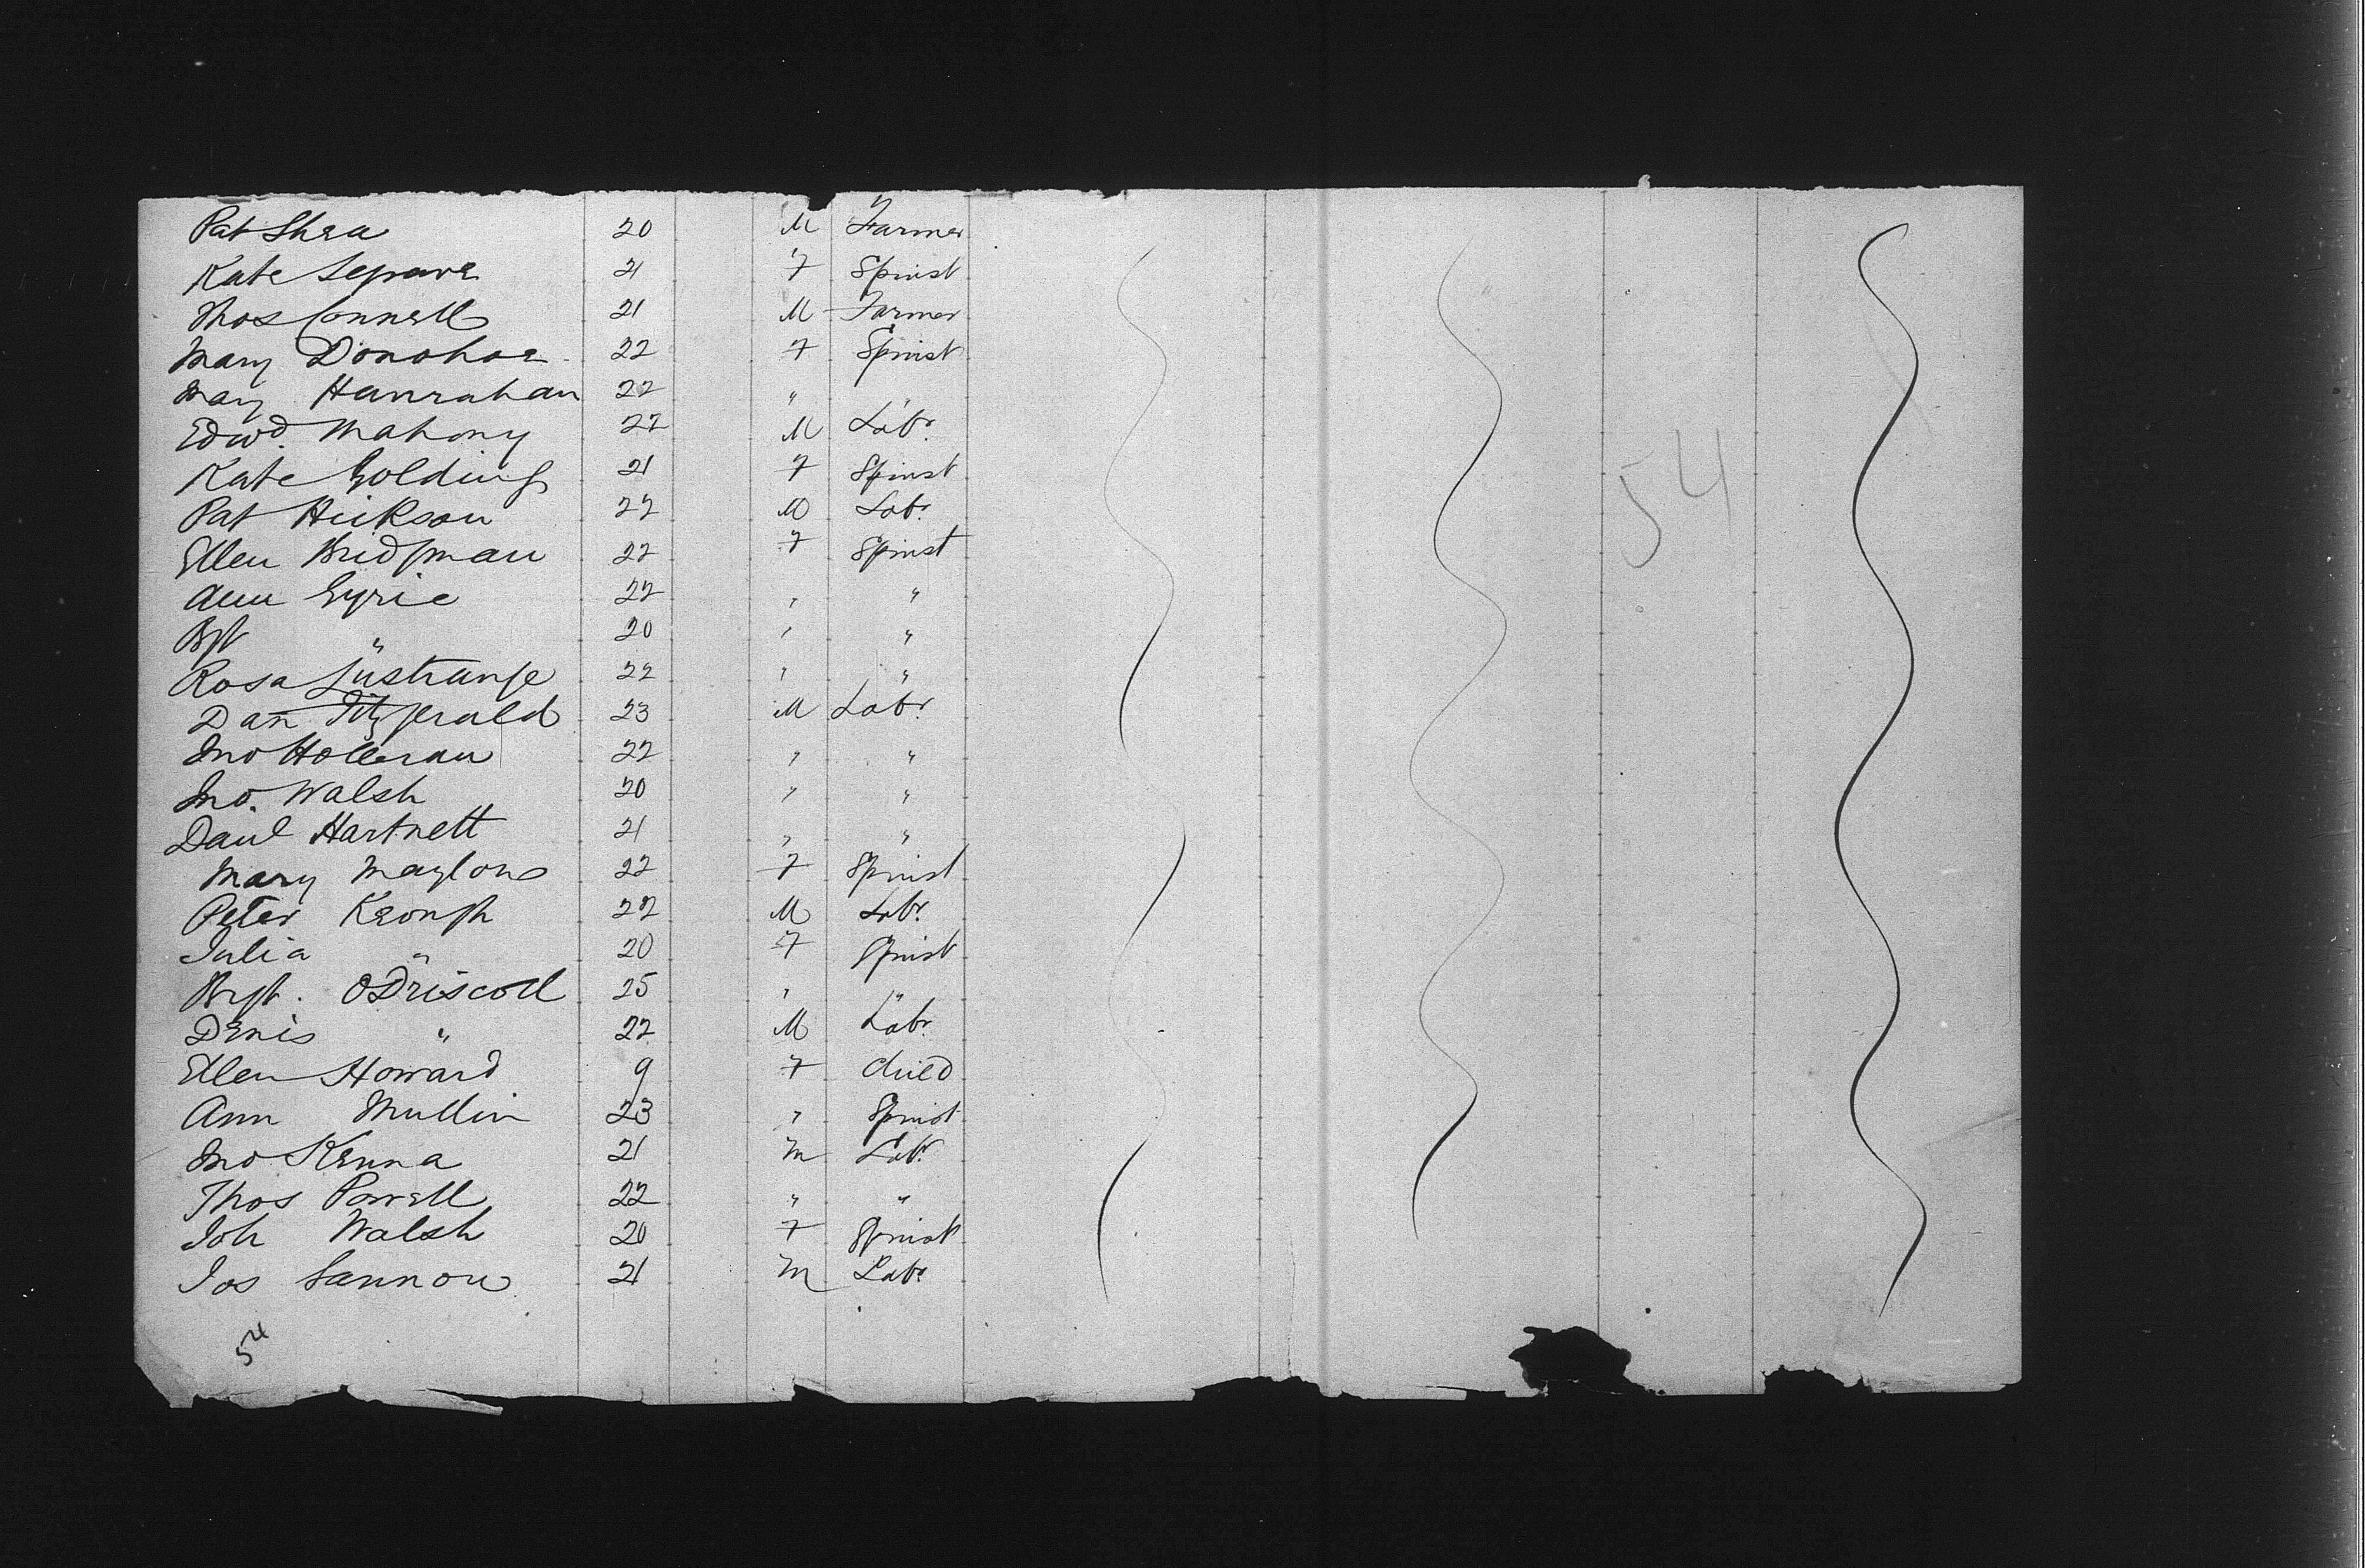 Pat Shea 20 M Farmer
Kate 21 F Spinst
Thos Connell 21 M Farmer
Mary Donohoe 22 F Spinst
Mary Hanrahan 22 " "
Edwd. Mahony 22 M Labr.
Kate Golding 21 F Spinst
Pat Hickson 22 M Labr.
Ellen Bridgman 22 F Spinst
Ann Gyrie 22 " "
Bgt " 20 " "
Rosa 22 " "
Dan Fitzgerald 23 M Labr.
Jno Holleran 22 " "
Jno. Walsh 20 " "
Danl Hartnett 21 " "
Mary 22 F Spinst
Peter Keough 22 M Labr.
Julia " 20 F Spinst
Brgt. O Driscoll 25 " "
Denis " 22 M Labr.
Ellen Howard 9 F Child
Ann Mullin 23 " Spinst
Jno Kenna 21 M Labr.
Thos Powell 22 " "
Joh Walsh 20 F Spinst
Jos Gannon 21 M Labr.
54
54